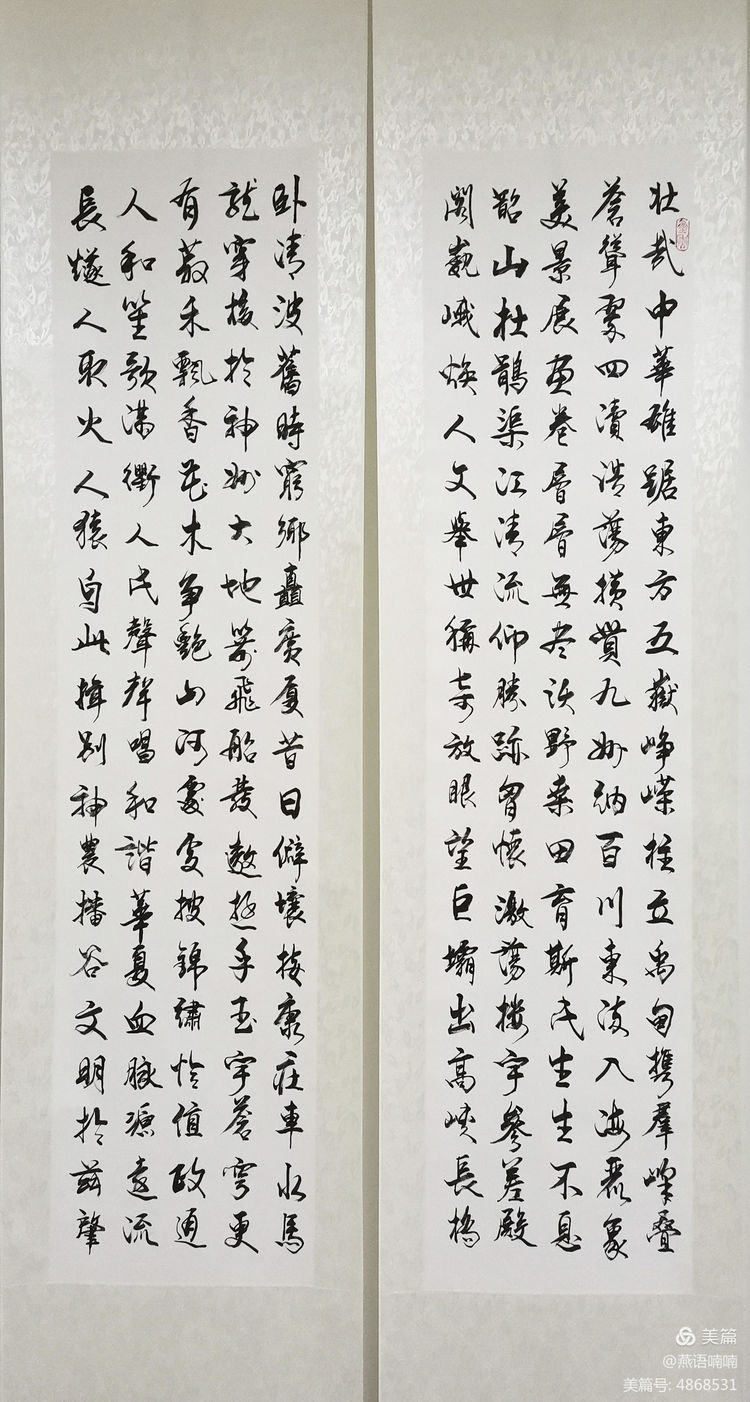 壮哉中華雄踞東方五嶽峥嵘柱立禹甸携群峰叠
蒼聳翠四瀆浩蕩横贯九州納百川東入海象
美景展画卷層層無尽沃野桑田育斯民生生不息
韶山杜鵑渠江清流仰勝跡胷懷激蕩楼宇參差殿
閣巍峨焕人文舉世稱奇放眼望巨壩出高峡長橋
卧清波舊時窮鄉矗廣厦昔日僻壤接康莊車水馬
龍穿梭於神州大地箭飛船發遨遊乎玉宇蒼穹更
有禾飄香花木争艷山河處處披錦繡恰值政通
人和笙歌满衢人民聲聲唱和諧華夏血脉源遠流
長燧人取火人猿自此揖别神農播谷文明於兹肇
美篇
@燕语喃喃
美篇号: 4868531